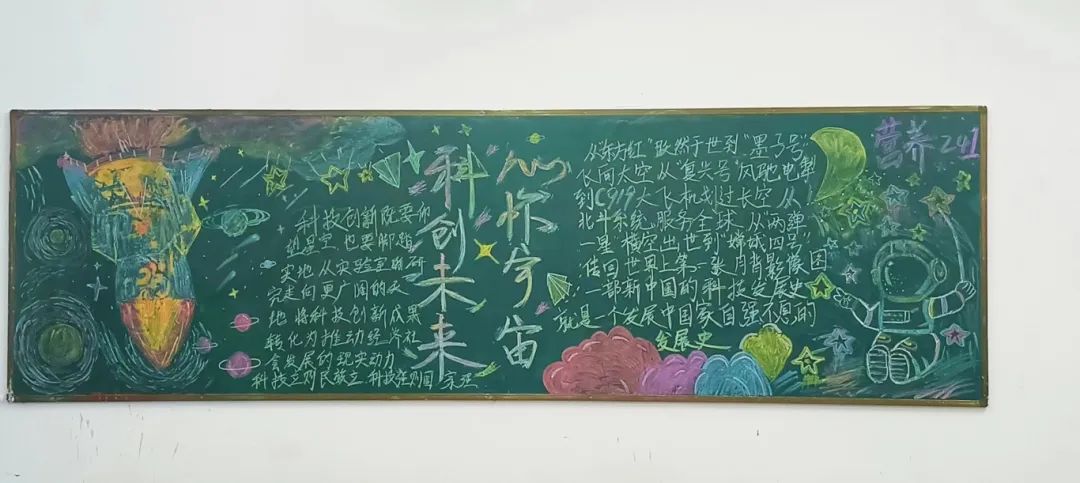 科技创新既要仰
望星空 也要脚踏
实地 从实验室的研
究走向更广阔的天
地 将科技创新成果
转化为推动经济社
会发展的现实动力
科技立则民族立 科技强则国家强
科创未来
心怀宇宙
从“东方红”跃然于世到“墨子号”
飞间太空 从“复兴号”风驰电掣
到C919大飞机划过长空 从
北斗系统 服务全球 从“两弹
一星”横空出世到“嫦娥四号”
传回世界上第一张月背影像图
一部新中国的科技发展史
就是一个发展中国家自强不息的
发展史
营养241